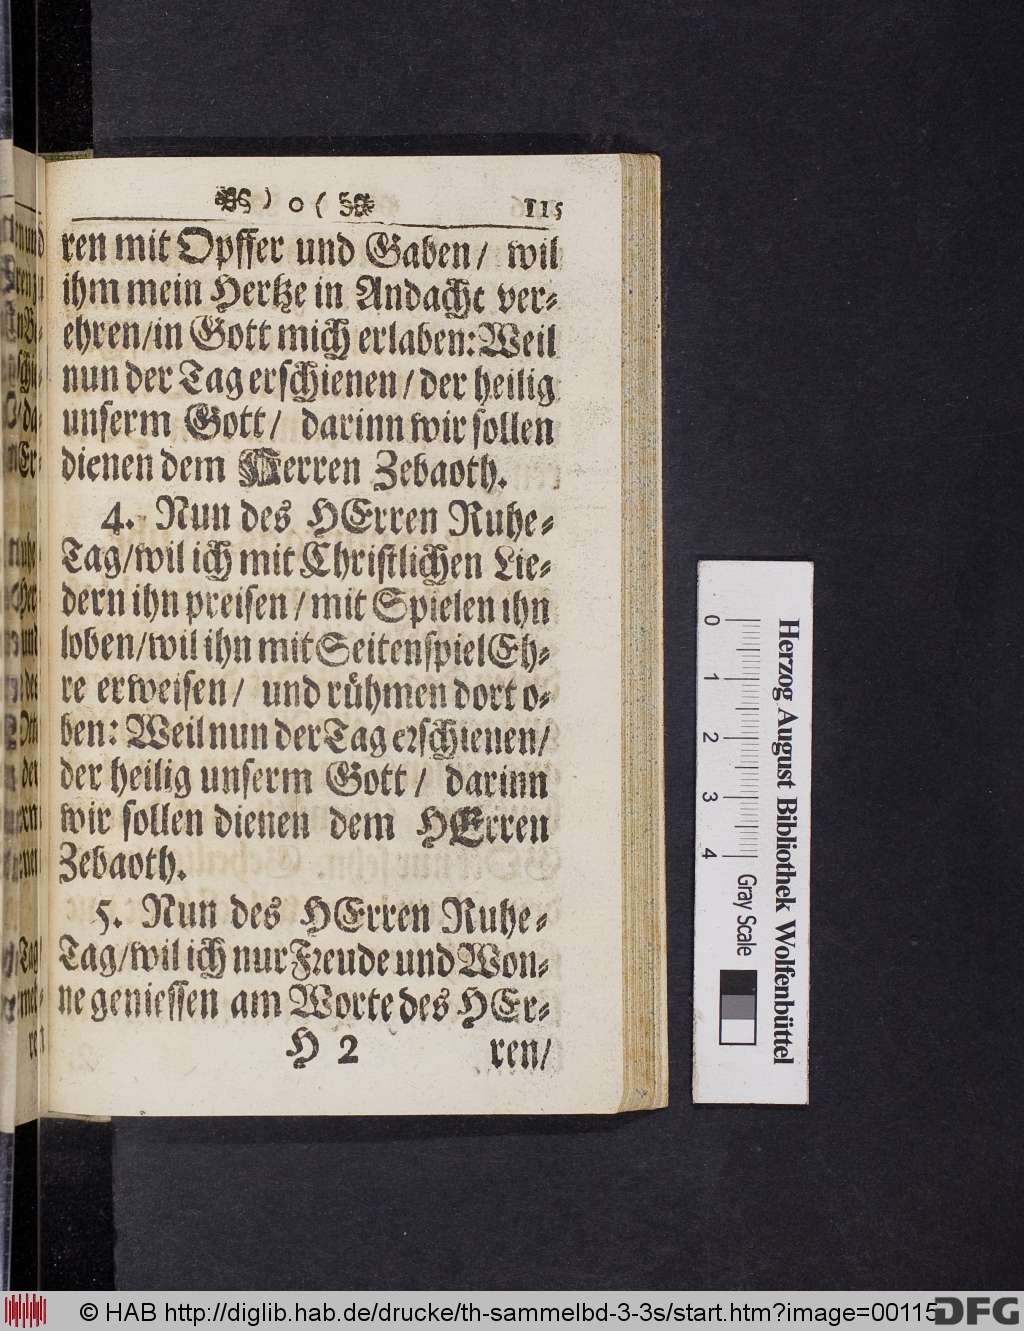 ) o ( 115
ren mit Opffer und Gaben / wil
ihm mein Hertze in Andacht ver⸗
ehren / in Gott mich erlaben: Weil
nun der Tag erschienen / der heilig
unserm Gott / darinn wir sollen
dienen dem HErren Zebaoth.
4. Nun des HErren Ruhe⸗
Tag / wil ich mit Christlichen Lie⸗
dern ihn preisen / mit Spielen ihn
loben / wil ihn mit Seitenspiel Eh⸗
re erweisen / und rühmen dort o⸗
ben: Weil nun der Tag erschienen /
der heilig unserm Gott / darinn
wir sollen dienen dem HErren
Zebaoth.
5. Nun des HErren Ruhe⸗
Tag / wil ich nur Freude und Won⸗
ne geniessen am Worte des HEr⸗
H 2 ren /
0 1 2 3 4
Gray Scale
Herzog August Bibliothek Wolfenbüttel
© HAB http://diglib.hab.de/drucke/th-sammelbd-3-3s/start.htm?image=00115
DFG